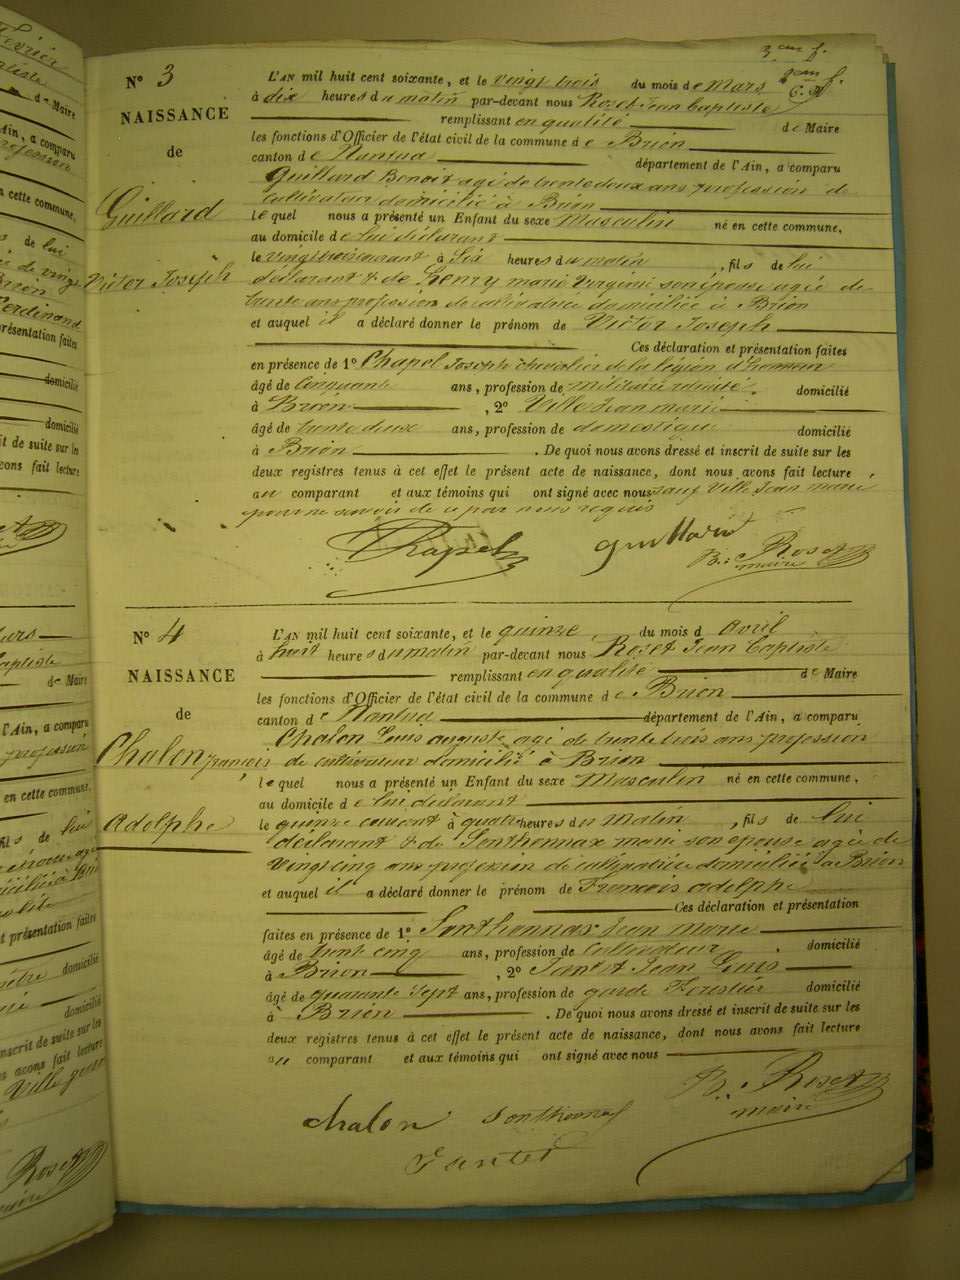 3
N° 3
NAISSANCE
de
Guillard
Victor Joseph
L'AN mil huit cent soixante, et le vingt trois du mois de Mars
à dix heures du matin par-devant nous Rozet Jean Baptiste
remplissant en qualité de Maire
les fonctions d'Officier de l'état civil de la commune de Brion
canton de Nantua département de l'Ain, a comparu
Guillard Benoit agé de trente deux ans profession de
cultivateur domicilié à Brion
lequel nous a présenté un Enfant du sexe Masculin né en cette commune,
au domicile de lui déclarant
le vingt trois courant à Six heures du matin, fils de lui
déclarant & de Henry marie Virginie son épouse agée de
trente ans profession de cultivatrice domiciliée à Brion
et auquel il a déclaré donner le prénom de Victor Joseph
Ces déclaration et présentation faites
en présence de 1° Chapel Joseph chevalier de la légion d'honneur
âgé de Cinquante ans, profession de militaire retraité domicilié
à Brion, 2° Ville Jean marie
âgé de trente deux ans, profession de domestique domicilié
à Brion. De quoi nous avons dressé et inscrit de suite sur les
deux registres tenus à cet effet le présent acte de naissance, dont nous avons fait lecture
au comparant et aux témoins qui ont signé avec nous sauf Ville Jean marie
pour ne savoir de ce par nous requis
Chapel Guillard B. Rozet
maire
N° 4
NAISSANCE
de
Chalon françois
Adolphe
L'AN mil huit cent soixante, et le quinze du mois d avril
à huit heures du matin par-devant nous Rozet Jean Baptiste
remplissant en qualité de Maire
les fonctions d'Officier de l'état civil de la commune de Brion
canton de Nantua département de l'Ain, a comparu
Chalon Louis auguste agé de trente trois ans profession
de cultivateur domicilié à Brion
lequel nous a présenté un Enfant du sexe Masculin né en cette commune,
au domicile de lui déclarant
le quinze courant à quatre heures du Matin, fils de lui
déclarant & de Sonthonnax marie son épouse agée de
Vingt cinq ans profession de cultivatrice domiciliée à Brion
et auquel il a déclaré donner le prénom de François adolphe
Ces déclaration et présentation
faites en présence de 1° Sonthonnax Jean Marie
âgé de trente cinq ans, profession de cultivateur, domicilié
à Brion, 2° Jantet Jean Louis
âgé de quarante Sept ans, profession de garde Forestier domicilié
à Brion. De quoi nous avons dressé et inscrit de suite sur les
deux registres tenus à cet effet le présent acte de naissance, dont nous avons fait lecture
au comparant et aux témoins qui ont signé avec nous
B. Rozet
maire
chalon Sonthonnax
Jantet